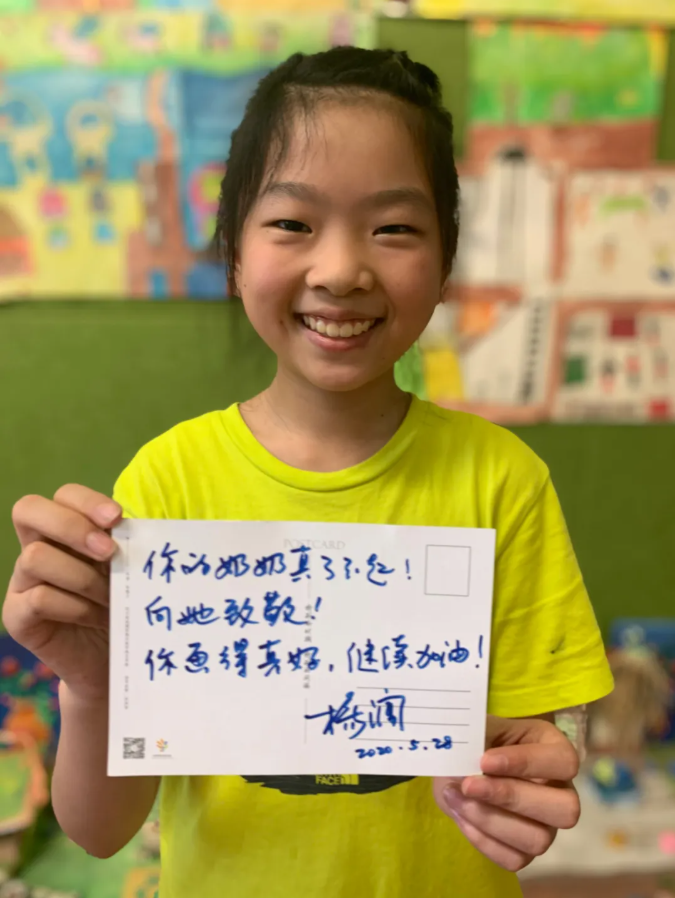 POSTCARD
你的奶奶真了不起！
向她致敬！
你画得真好，继续加油！
杨澜
2020.5.28
FACE